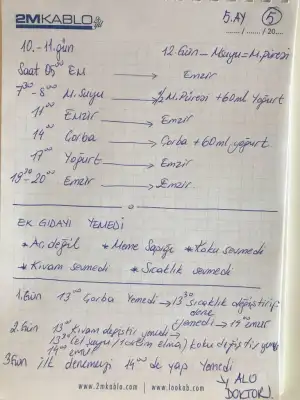 2MKABLO
5.AY 5
...../...../20....
10.-11.gün
12.Gün - Msuyu - M.Püresi
Saat 05⁰⁰ Em. → Emzir
7³⁰-8⁰⁰ M.Suyu → 1/2 M.Püresi +60ml Yoğurt
11⁰⁰ Emzir → Emzir
14⁰⁰ Çorba → Çorba +60ml yoğurt
17⁰⁰ Yoğurt → Emzir
19³⁰-20⁰⁰ Emzir → Emzir
EK GIDAYI YEMEDİ
* Aç değil * Meme Sapığı * Koku sevmedi
* Kıvam sevmedi * Sıcaklık sevmedi
1.Gün 13⁰⁰ Çorba Yemedi → 13³⁰ Sıcaklık değiştirip
dene
Yemedi → 14⁰⁰ emzir
2.Gün 13⁰⁰ Kıvam değiştir yemedi
13³⁰ (el suyu / elma) koku değiştir
14⁰⁰ emzir
3.Gün ilk denemeyi 14⁰⁰ de yap Yemedi
↳ ALO
DOKTOR!
www.2mkablo.com | www.lookab.com